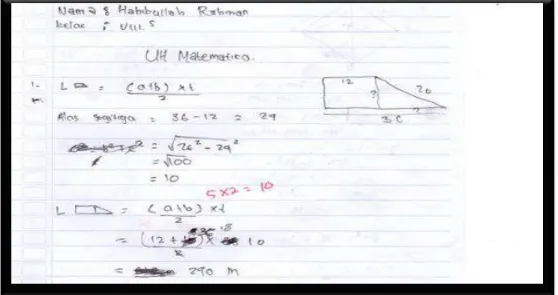 Nama : Habibullah Rahman
kelas : VIII.5
UH Matematica.
1. L = (a+b) xt
2
12
20
?
?
36
Alas segitiga = 36 - 12 = 24
= √26² - 24²
= √100
= 10
5 x 2 = 10
L = (a+b) xt
2
= (12 + 36) x 10
18
2
= 240 m